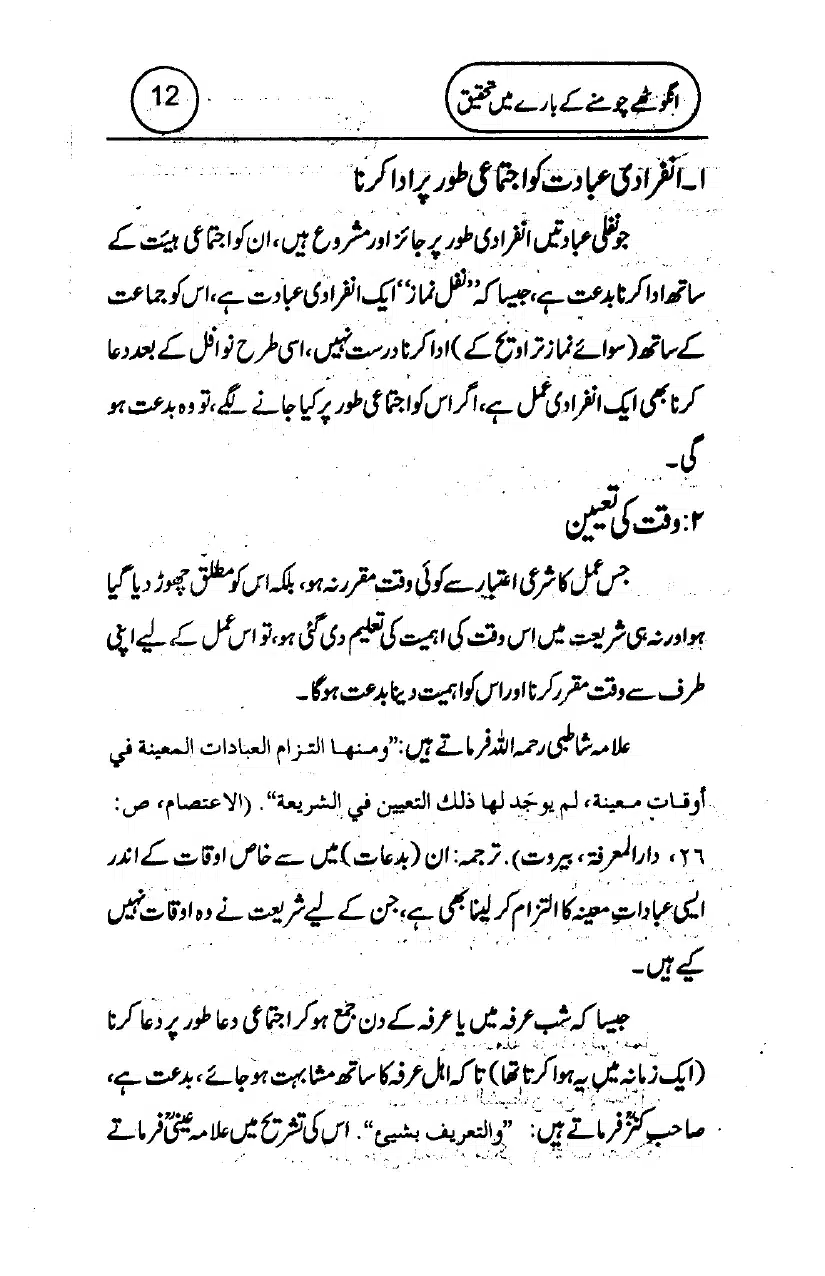 انگوٹھے چومنے کے بارے میں تحقیق
12
۱۔ انفرادی عبادت کو اجتماعی طور پر ادا کرنا
جو نفلی عبادتیں انفرادی طور پر جائز اور مشروع ہیں، ان کو اجتماعی ہیئت کے
ساتھ ادا کرنا بدعت ہے، جیسا کہ ”نفل نماز“ ایک انفرادی عبادت ہے، اس کو جماعت
کے ساتھ (سوائے نماز تراویح کے) ادا کرنا درست نہیں، اسی طرح نوافل کے بعد دعا
کرنا بھی ایک انفرادی عمل ہے، اگر اس کو اجتماعی طور پر کیا جانے لگے، تو وہ بدعت ہو
گی۔
۲: وقت کی تعیین
جس عمل کا شرعی اعتبار سے کوئی وقت مقرر نہ ہو، بلکہ اس کو مطلق چھوڑ دیا گیا
ہو اور نہ ہی شریعت میں اس وقت کی اہمیت کی تعلیم دی گئی ہو، تو اس عمل کے لیے اپنی
طرف سے وقت مقرر کرنا اور اس کو اہمیت دینا بدعت ہوگا۔
علامہ شاطبی رحمہ اللہ فرماتے ہیں: ”ومنها التزام العبادات المعينة في
أوقات معينة، لم يوجد لها ذلك التعيين في الشريعة“. (الاعتصام، ص:
۲٦، دار المعرفۃ، بیروت). ترجمہ: ان (بدعات) میں سے خاص اوقات کے اندر
ایسی عباداتِ معینہ کا التزام کر لینا بھی ہے، جن کے لیے شریعت نے وہ اوقات نہیں
کیے ہیں۔
جیسا کہ شب عرفہ میں یا عرفہ کے دن جمع ہو کر اجتماعی دعا طور پر دعا کرنا
(ایک زمانہ میں یہ ہوا کرتا تھا) تا کہ اہل عرفہ کا ساتھ مشابہت ہو جائے، بدعت ہے،
صاحب کنزؒ فرماتے ہیں: ”والتعريف بشيئ“. اس کی تشریح میں علامہ عینیؒ فرماتے